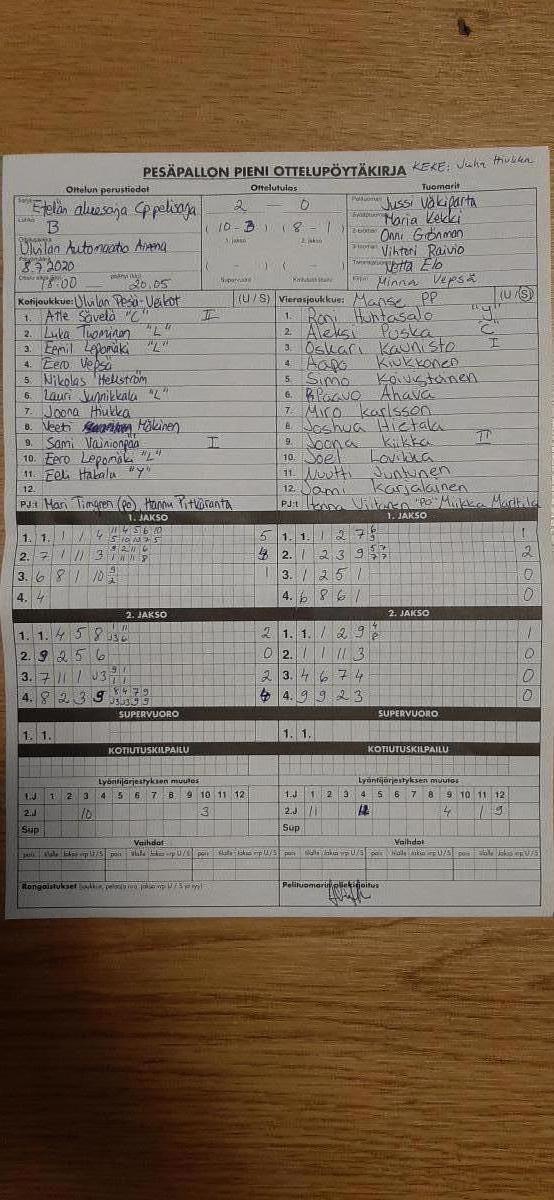 PESÄPALLON PIENI OTTELUPÖYTÄKIRJA KEKE: Juha Hiukka
Ottelun perustiedot Ottelutulos Tuomarit
Etelän aluesarja Cppelisarja 2 — 0 Jussi Väkiparta
B (10 - 3) (8 - 1) Marja Kekki
1. jakso 2. jakso Onni Grönman
Ulvilan Automaatio Areena Viktori Raivio
8.7.2020 ( - ) ( - ) Netta Elo
18:00 — 20.05 Supervuoro Kotiutuskilpailu Minna Vepsä
Kotijoukkue: Ulvilan Pesä-Veikot (U / S) Vierasjoukkue: Manse PP (U / S)
1. Atte Sävelä "C" II 1. Roni Huhtasalo "Y"
2. Luka Tuominen "L" 2. Aleksi Puska "C"
3. Eemil Lepomäki "L" 3. Oskari Kaunisto I
4. Eero Vepsä 4. Aapo Kiukkonen
5. Nikolas Hellström 5. Simo Koivistoinen
6. Lauri Junnikkala "L" 6. Paavo Ahava
7. Joona Hiukka 7. Miro Karlsson
8. Veeti Mäkinen 8. Joshua Hietala
9. Sami Vainionpää I 9. Joona Kiikka II
10. Eero Lepomäki "L" 10. Joel Lovikka
11. Eeli Hakala "Y" 11. Nuutti Juntunen
12. 12. Jami Karjalainen
PJ:t Mari Timgren (po) Hannu Pitkäranta PJ:t Hanna Viitanen "po" Miikka Marttila
1. JAKSO 1. JAKSO
1. 1. 1 1 4 11 4 5 6 10 5 1. 1. 1 2 7 6 1
5 10 10 7 5 9
2. 7 1 11 3 9 2 11 6 4 2. 1 2 3 9 57 2
1 11 11 8 77
3. 6 8 1 10 9 1 3. 1 2 5 1 0
2
4. 4 4. 6 8 6 1 0
2. JAKSO 2. JAKSO
1. 1. 4 5 8 1 11 2 1. 1. 1 2 9 4 1
J3 6
2. 9 2 5 6 0 2. 1 1 11 3 0
3. 7 11 1 J3 9 1 2 3. 4 6 7 4 0
1 1
4. 8 2 3 9 8 4 7 9 4 4. 9 9 2 3 0
J3 J3 9 9
SUPERVUORO SUPERVUORO
1. 1. 1. 1.
KOTIUTUSKILPAILU KOTIUTUSKILPAILU
Lyöntijärjestyksen muutos Lyöntijärjestyksen muutos
1.J 1 2 3 4 5 6 7 8 9 10 11 12 1.J 1 2 3 4 5 6 7 8 9 10 11 12
2.J 10 3 2.J 11 4 1 9
Sup Sup
Vaihdot Vaihdot
pois tilalle Jakso vrp U / S pois tilalle Jakso vrp U / S pois tilalle Jakso vrp U / S pois tilalle Jakso vrp U / S
Rangaistukset (joukkue, pelaaja nro, jakso vrp U / S ja syy) Pelituomarin allekirjoitus